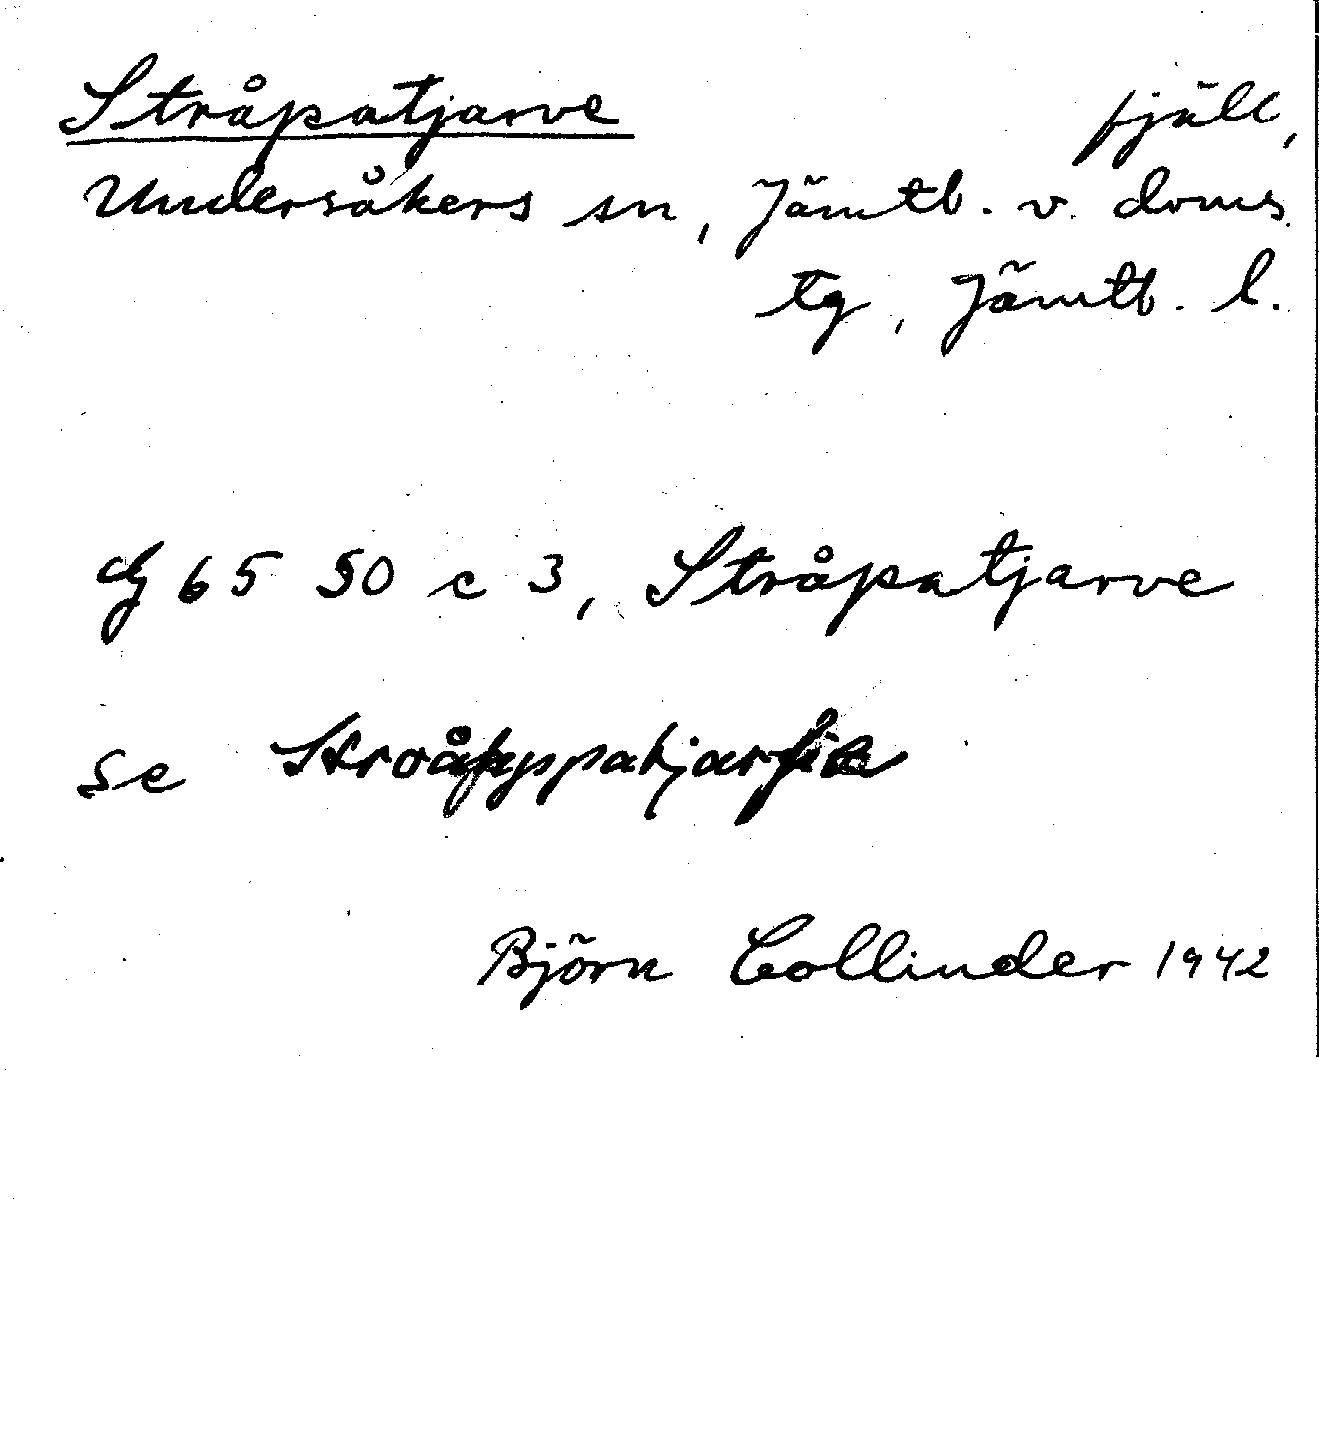 Stråpatjarve fjäll,
Undersåkers sn, Jämtl. v. doms.
tg, Jämtl. l.
G 65 50 c 3, Stråpatjarve
se
Björn Collinder 1942